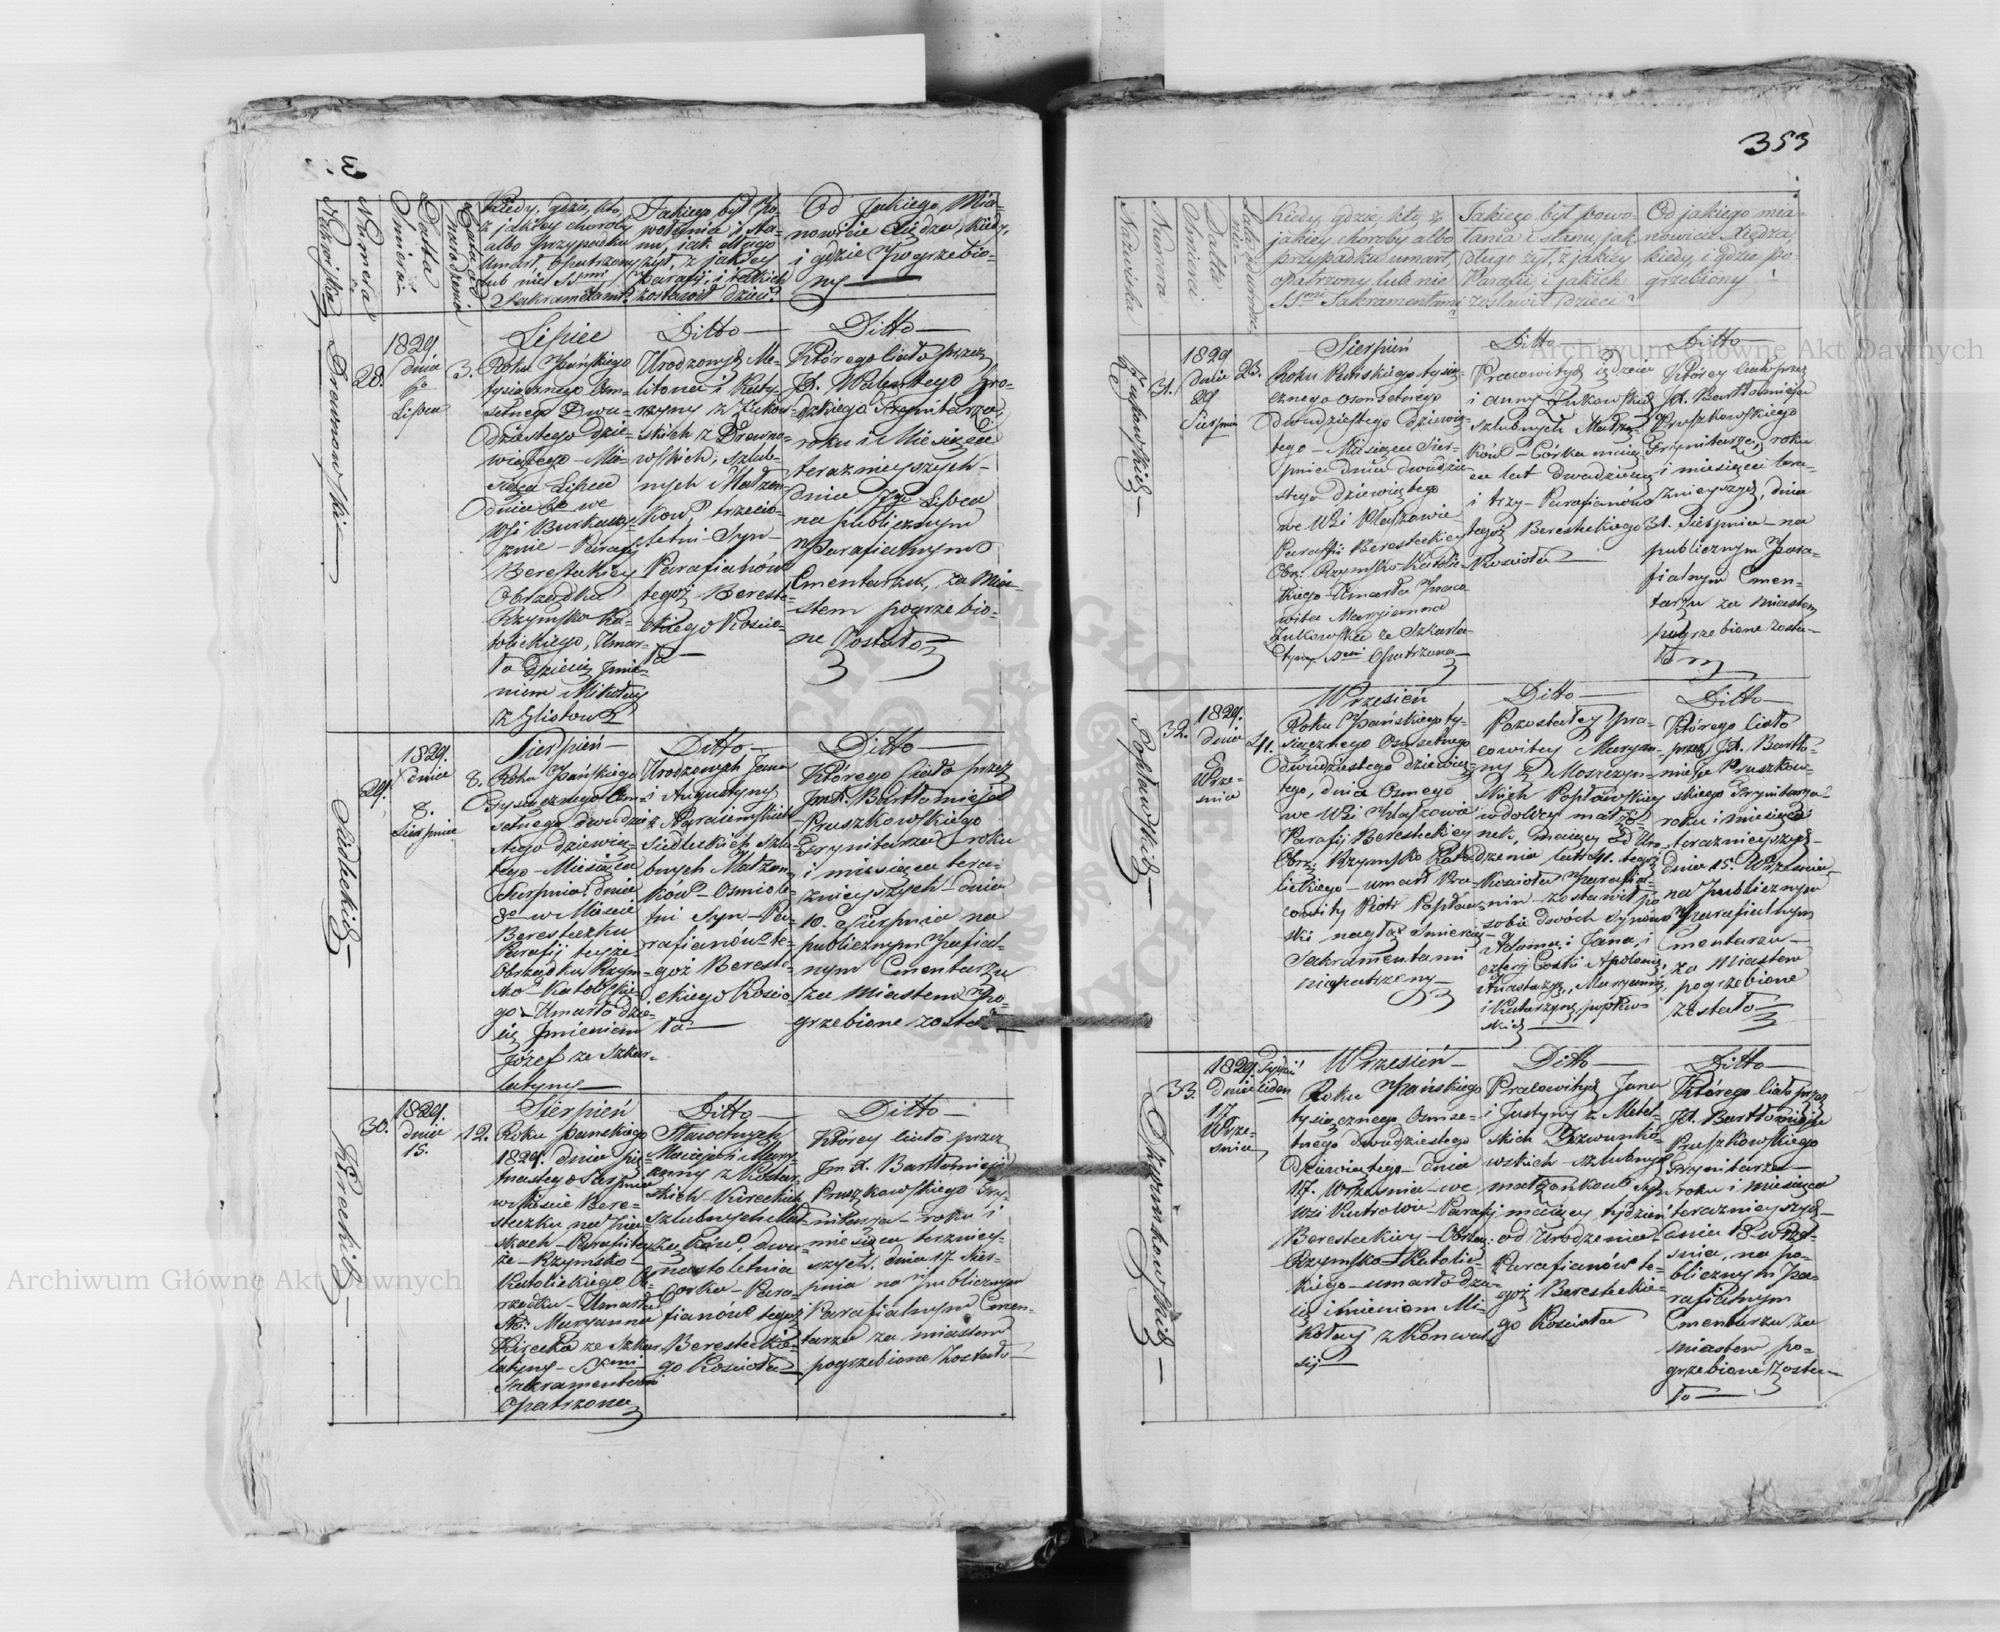 353
Nazwiska
Numera
Datta Śmierci
Lata od Urodzenia
Kiedy, gdzie, kto,
z jakiey choroby
albo Przypadku
umarł Opatrzony
lub nie SSmi
Sakramentami?
Jakiego był Po-
wołania i Sta-
nu, jak długo
żył, z jakiey
Parafii, i jakich
zostawił dzieci?
Od Jakiego Mia-
nowicie Xiędza, kiedy,
i gdzie Pogrzebio-
ny
Drewnowski
28.
1829
dnia
6o
Lipca
3.
Lipiec
Roku Pańskiego
tysiącznego Ośm-
setnego Dwu-
dziestego dzie-
wiątego Mie-
siąca Lipca
dnia 6o we
Wsi Burkaczy-
znie Parafij
Beresteckiey
Obrządku
Rzymsko Ka-
tolickiego, Umar-
ło Dziecię Jmie-
niem Mikołay
z Glistów
Ditto
Urodzonych Me-
litona i Kata-
rzyny z Żukow-
skich z Drewno-
wskich, szlub-
nych Małżon-
ków, trzecio-
letni Syn
Parafianów
tegoż Bereste-
ckiego Kościo-
ła
Ditto
Którego ciało przez
JX. Walentego Gro-
dzkiego Trynitarza,
roku i Miesiąca
teraznieyszych
dnia 7go Lipca
na publicznym
Parafialnym
Cmentarzu, za Mia-
stem pogrzebio-
ne Zostało
Siedlecki
29.
1829.
dnia
8.
Sierpnia
8.
Sierpień
Roku Pańskiego
Tysiącznego Ośm-
setnego dwudzie-
stego dziewią-
tego Miesiąca
Sierpnia dnia
8o w Mieście
Beresteczku
Parafij teyże
Obrządku Rzym-
sko Katolickie-
go Umarło dzie-
cię Jmieniem
Józef ze Szkar-
latyny
Ditto
Urodzonych Jana
i Augustyny
z
Siedleckich szlu-
bnych Małżon-
ków Osmiole-
tni Syn Pa-
rafianów te-
goż Bereste-
ckiego Kościo-
ła
Ditto
Którego Ciało przez
JmX. Bartłomieja
Pruszkowskiego
Trynitarza roku
i miesiąca tera-
znieyszych dnia
10. Sierpnia na
publicznym Parafial-
nym Cmentarzu
za Miastem Po-
grzebione zostało
30.
1829.
dnia
15.
12.
Sierpień
Roku Pańskiego
1829. dnia pię-
tnastego Sierpnia
w Mieście Bere-
steczku na
Parafii tey-
że Rzymsko
Katolickiego Ob-
rządku Umarła
Maryanna
Kirecka ze Szkar-
latyny
Sakramentami
Opatrzona
Ditto
Macieja i Mary-
anny z
Kireckich
Szlubnych Mał-
żonków, dwu-
nastoletnia
Corka Para-
fianów tegoż
Beresteckie-
go Kościoła
Ditto
Którey ciało przez
Jm X. Bartłomieja
Pruszkowskiego Try-
nitarza roku i
miesiąca terazniey-
szych, dnia 17. Sier-
pnia na publicznym
Parafialnym Cmen-
tarzu za miastem
pogrzebione zostało
Nazwiska
Numera
Datta Śmierci
Kiedy, gdzie, kto, z
jakiey choroby albo
przypadku umarł,
opatrzony lub nie
SSmi Sakramentami
Jakiego był powo-
łania i stanu, jak
długo żył, z jakiey
Parafii, i jakich
zostawił dzieci?
Od jakiego mia-
nowicie Xiędza,
kiedy, i gdzie po-
grzebiony
31.
1829
dnia
29
Sierpnia
23.
Sierpień
Roku Pańskiego tysią-
cznego osmsetnego
dwudziestego dziewią-
tego Miesiąca Sier-
pnia dnia dwudzie-
stego dziewiątego
we Wsi Plaszowie
Parafii Beresteckiey
Obrz: Rzymsko Katolic-
kiego Umarła Praco-
wita Maryjanna
Żukowska ze Szkarla-
tyny SSmi Opatrzona
Ditto
Pracowitych
i Anny Żukowskich
szlubnych Małżon-
ków Córka mają-
ca lat dwadzieścia
i trzy Parafianów
tegoż Beresteckiego
Kościoła
Ditto
Którey Ciało przez
JX. Bartłomieja
Pruszkowskiego
Trynitarza, roku
i miesiąca tera-
znieyszych, dnia
31. Sierpnia na
publicznym Para-
fialnym Cmen-
tarzu za miastem
pogrzebione zosta-
ło
Popławski
32.
1829.
dnia
8
Wrze-
śnia
41.
Wrzesień
Roku Pańskiego ty-
siącznego Osmsetnego
dwudziestego dziewią-
tego, dnia Osmego
we Wsi Plaszowie
Parafij Beresteckiey
Obrz. Rzymsko Kato-
lickiego umarł Pra-
cowity Piotr Popław-
ski nagłą Śmiercią
Sakramentami
nieopatrzony
Ditto
Pozostałey Pra-
cowitey Maryan-
ny z Moszczyn-
skich Popławskiey
wdowy małżo-
nek, mający od Uro-
dzenia lat 41. tegoż
Kościoła Parafia-
nin zostawił po
sobie dwóch synów
Adama i Jana, i
cztery Corki Apolonię,
Anastazyę, Maryannę,
i Katarzynę popław-
skich
Ditto
Którego Ciało
przez JX. Bartło-
mieja Pruszkow-
skiego Trynitarza
roku i miesiąca
teraznieyszych
dnia 15. Września
na publicznym
Parafialnym
Cmentarzu
za Miastem
pogrzebione
zostało
33.
1829.
dnia
17.
Wrze-
śnia
Tydzień
ieden
Wrzesień
Roku Pańskiego
tysiącznego Osmse-
tnego dwudziestego
dziewiątego dnia
17. Września we
Wsi Kutrowie Parafij
Beresteckiey Obrzą:
Rzymsko Katolic-
kiego umarło dzie-
cię imieniem Mi-
kołay z Konwul-
sij
Ditto
Pracowitych Jana
i Justyny z Metel-
skich
szlubnych
małżonków syn
mający tydzień
od Urodzenia
Parafianów te-
goż Beresteckie-
go Kościoła
Ditto
Którego Ciało przez
JX. Bartłomieja
Pruszkowskiego
Trynitarza
roku i miesiąca
teraznieyszych
dnia 18 Wrze-
śnia, na pu-
blicznym Pa-
rafialnym
Cmentarzu za
miastem po-
grzebione zosta-
ło
Archiwum Główne Akt Dawnych
Archiwum Główne Akt Dawnych